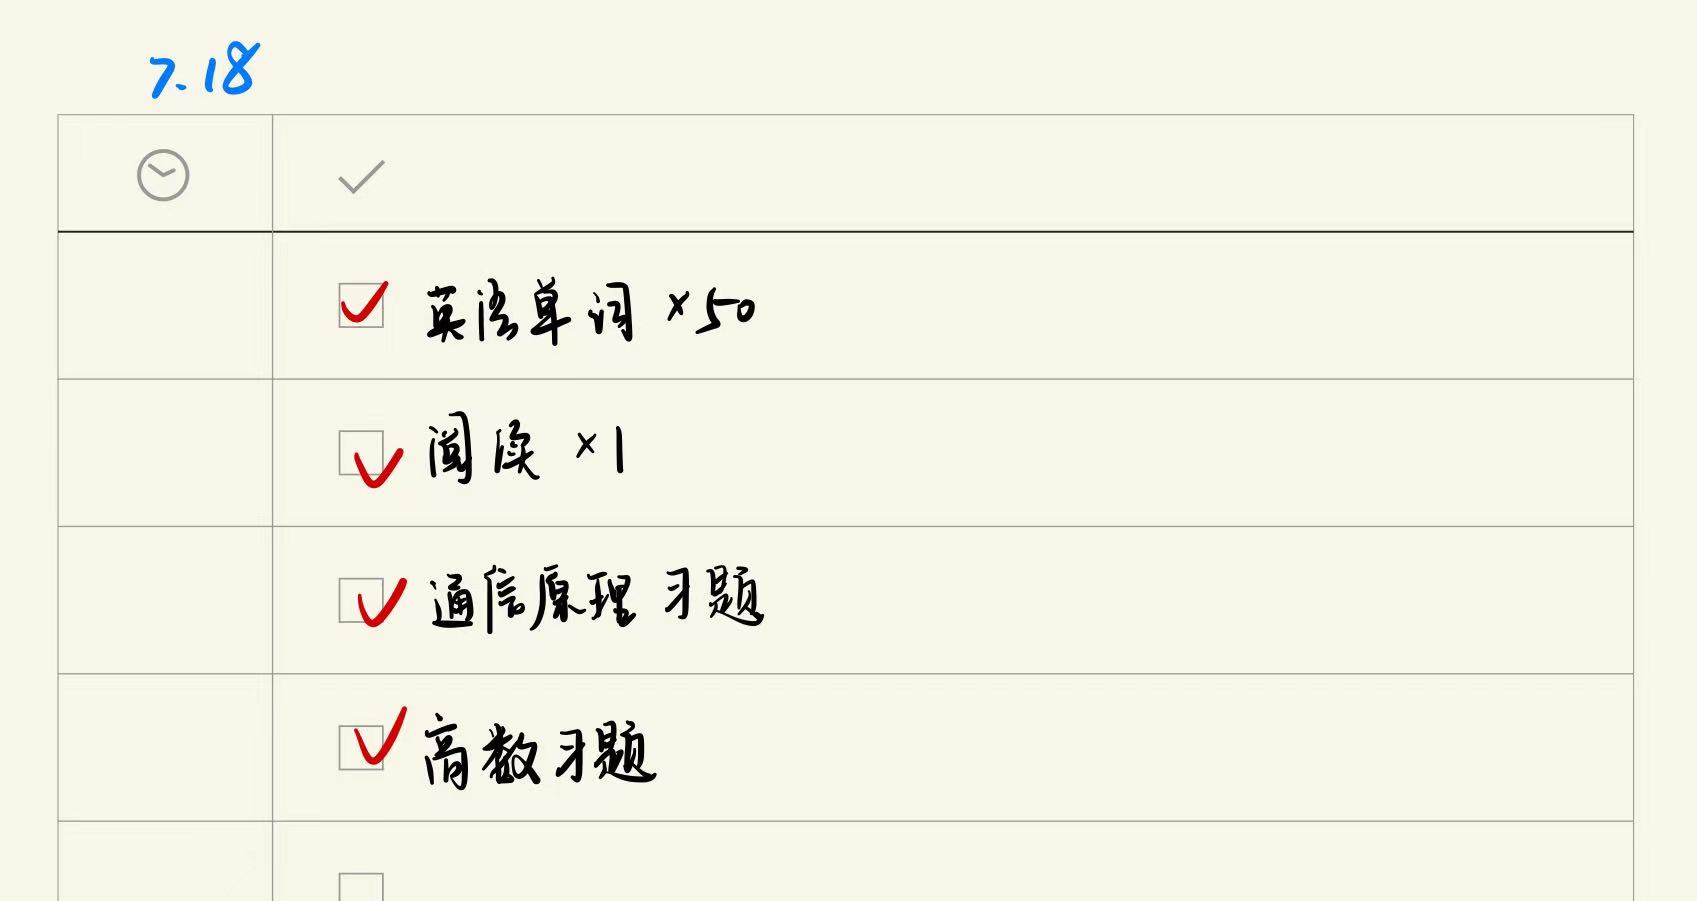 7.18
英语单词 ×50
阅读 ×1
通信原理习题
高数习题